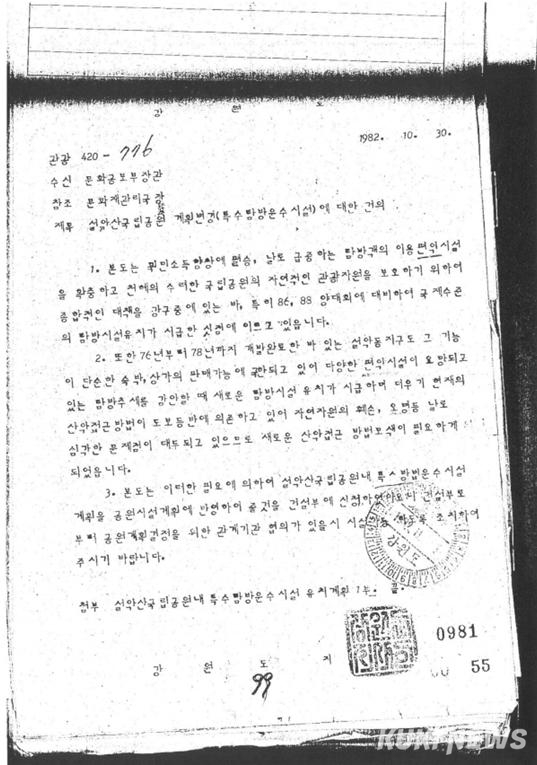 강 원 도
1982. 10. 30.
관광 420 - 776
수신 문화공보부장관
참조 문화재관리국장
제목 설악산국립공원 계획변경(특수탐방운수시설)에 대한 건의
1. 본도는 국민소득향상에 편승, 날로 급증하는 탐방객의 이용편익시설
을 확충하고 천혜의 수려한 국립공원의 자연적인 관광자원을 보호하기 위하여
종합적인 대책을 강구중에 있는 바, 특히 86, 88 양대회에 대비하여 국제수준
의 탐방시설유치가 시급한 실정에 이르고 있읍니다.
2. 또한 76년부터 78년까지 개발완료한 바 있는 설악동지구도 그 기능
이 단순한 숙박, 상가의 판매기능에 국한되고 있어 다양한 편익시설이 요망되고
있는 탐방추세를 감안할 때 새로운 탐방시설 유치가 시급하며 더우기 현재의
산악접근방법이 도보등반에 의존하고 있어 자연자원의 훼손, 오염등 날로
심각한 문제점이 대두되고 있으므로 새로운 산악접근 방법모색이 필요하게
되었읍니다.
3. 본도는 이러한 필요에 의하여 설악산국립공원내 특수탐방운수시설
계획을 공원시설계획에 반영하여 줄것을 건설부에 신청하였아오니 건설부로
부터 공원계획결정을 위한 관계기관 협의가 있을시 조치하여
주시기 바랍니다.
첨부 설악산국립공원내 특수탐방운수시설 유치계획 1부. 끝
강원도
강 원 도 지
0981
55
99
KUKINEWS